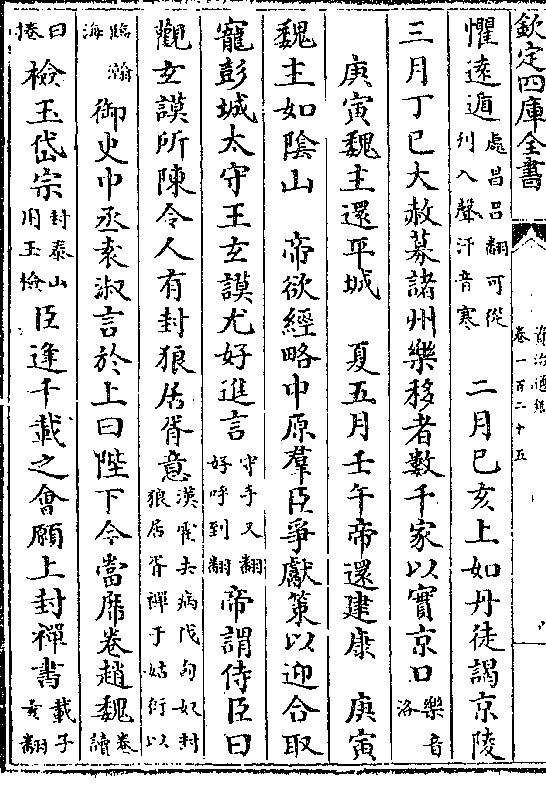 欽定四庫全書
資治通鑑
卷一百二十五
懼遠遁處昌呂翻可從刋入聲汗音寒　二月己亥上如丹徒謁京陵
三月丁巳大赦募諸州樂移者數千家以實京口樂音洛
庚寅魏主還平城　夏五月壬午帝還建康　庚寅
魏主如陰山　帝欲經略中原羣臣爭獻策以迎合取
寵彭城太守王玄謨尤好進言守手又翻好呼到翻帝謂侍臣曰
觀玄謨所陳令人有封狼居胥意漢霍去病伐匈奴封狼居胥禪于姑衍以
臨瀚海御史中丞袁淑言於上曰陛下今當席卷趙魏卷讀
曰捲檢玉岱宗封泰山用玉檢臣逢千載之會願上封禪書載子亥翻